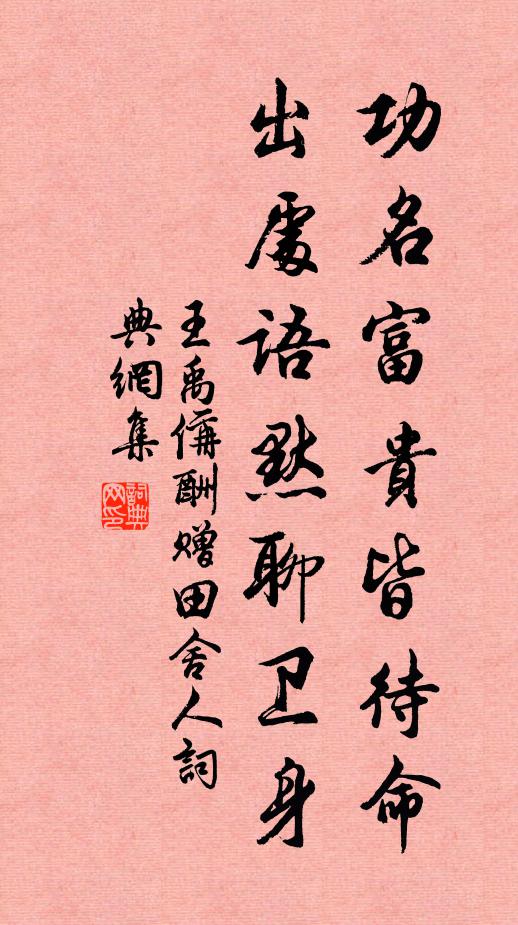 功名富貴皆待命
出處語默聊卫身
王禹偁酬贈田舍人詞
典網集
詞典
网印